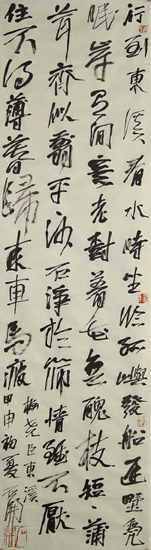 行到東溪看水時坐臨孤嶼發船遲野凫
眠岸有閒意老樹著花無醜枝短〻蒲
茸齊似翦平〻沙石淨於篩情雖不厭
住不得薄暮歸來車馬疲
梅堯臣東溪
甲申初夏